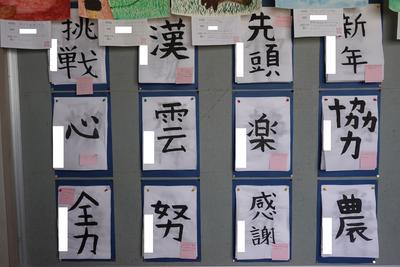 挑戦
漢
先頭
新年
心
雲
楽
協力
全力
努
感謝
農